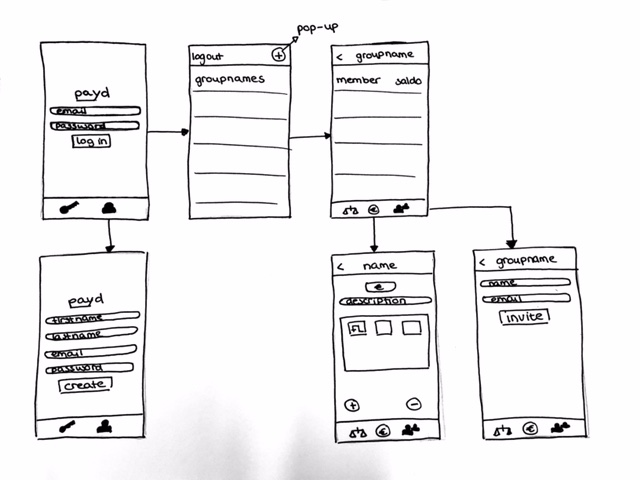 pop-up
payd
email
password
log in
logout
+
groupnames
< groupname
member saldo
€
payd
firstname
lastname
email
password
create
< name
€
description
FL
+ -
€
< groupname
name
email
invite
€